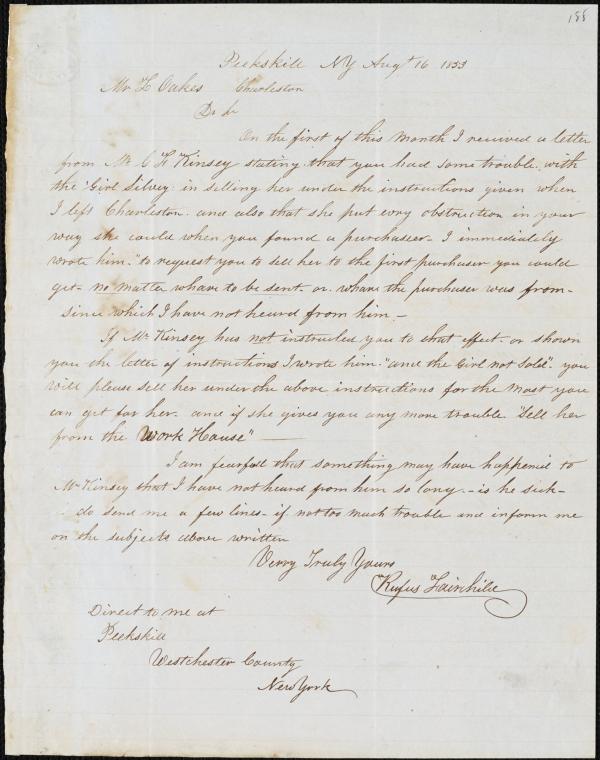 188
Peekskill NY Augt 16 1853
Mr Z Oakes Charleston
Dr Sr
On the first of this Month I received a letter
from Mr C H Kinsey stating that you had some trouble with
the "Girl Silvey" in selling her under the instructions given when
I left Charleston. and also that she put evry obstruction in your
way she could when you found a purchaseer – I immediately
wrote him – "to request you to sell her to the first purchaser you could
get – no matter whare to be sent – or – whare the purchaser was from –
since which I have not heard from him –
If Mr Kinsey has not instructed you to that effect – or shown
you the letter of instructions I wrote him – "and the Girl not Sold" – you
will please sell her under the above instructions for the Most you
can get for her – and if she gives you any more trouble Sell her
from the "Work House" –
I am fearfull that something may have happened to
Mr Kinsey that I have not heard from him so long – is he sick –
do send me a few lines – if not too much trouble and inform me
on the subjects above written
Verry Truly Yours
Rufus Fairchild
Direct to me at
Peekskill
Westchester County
New York